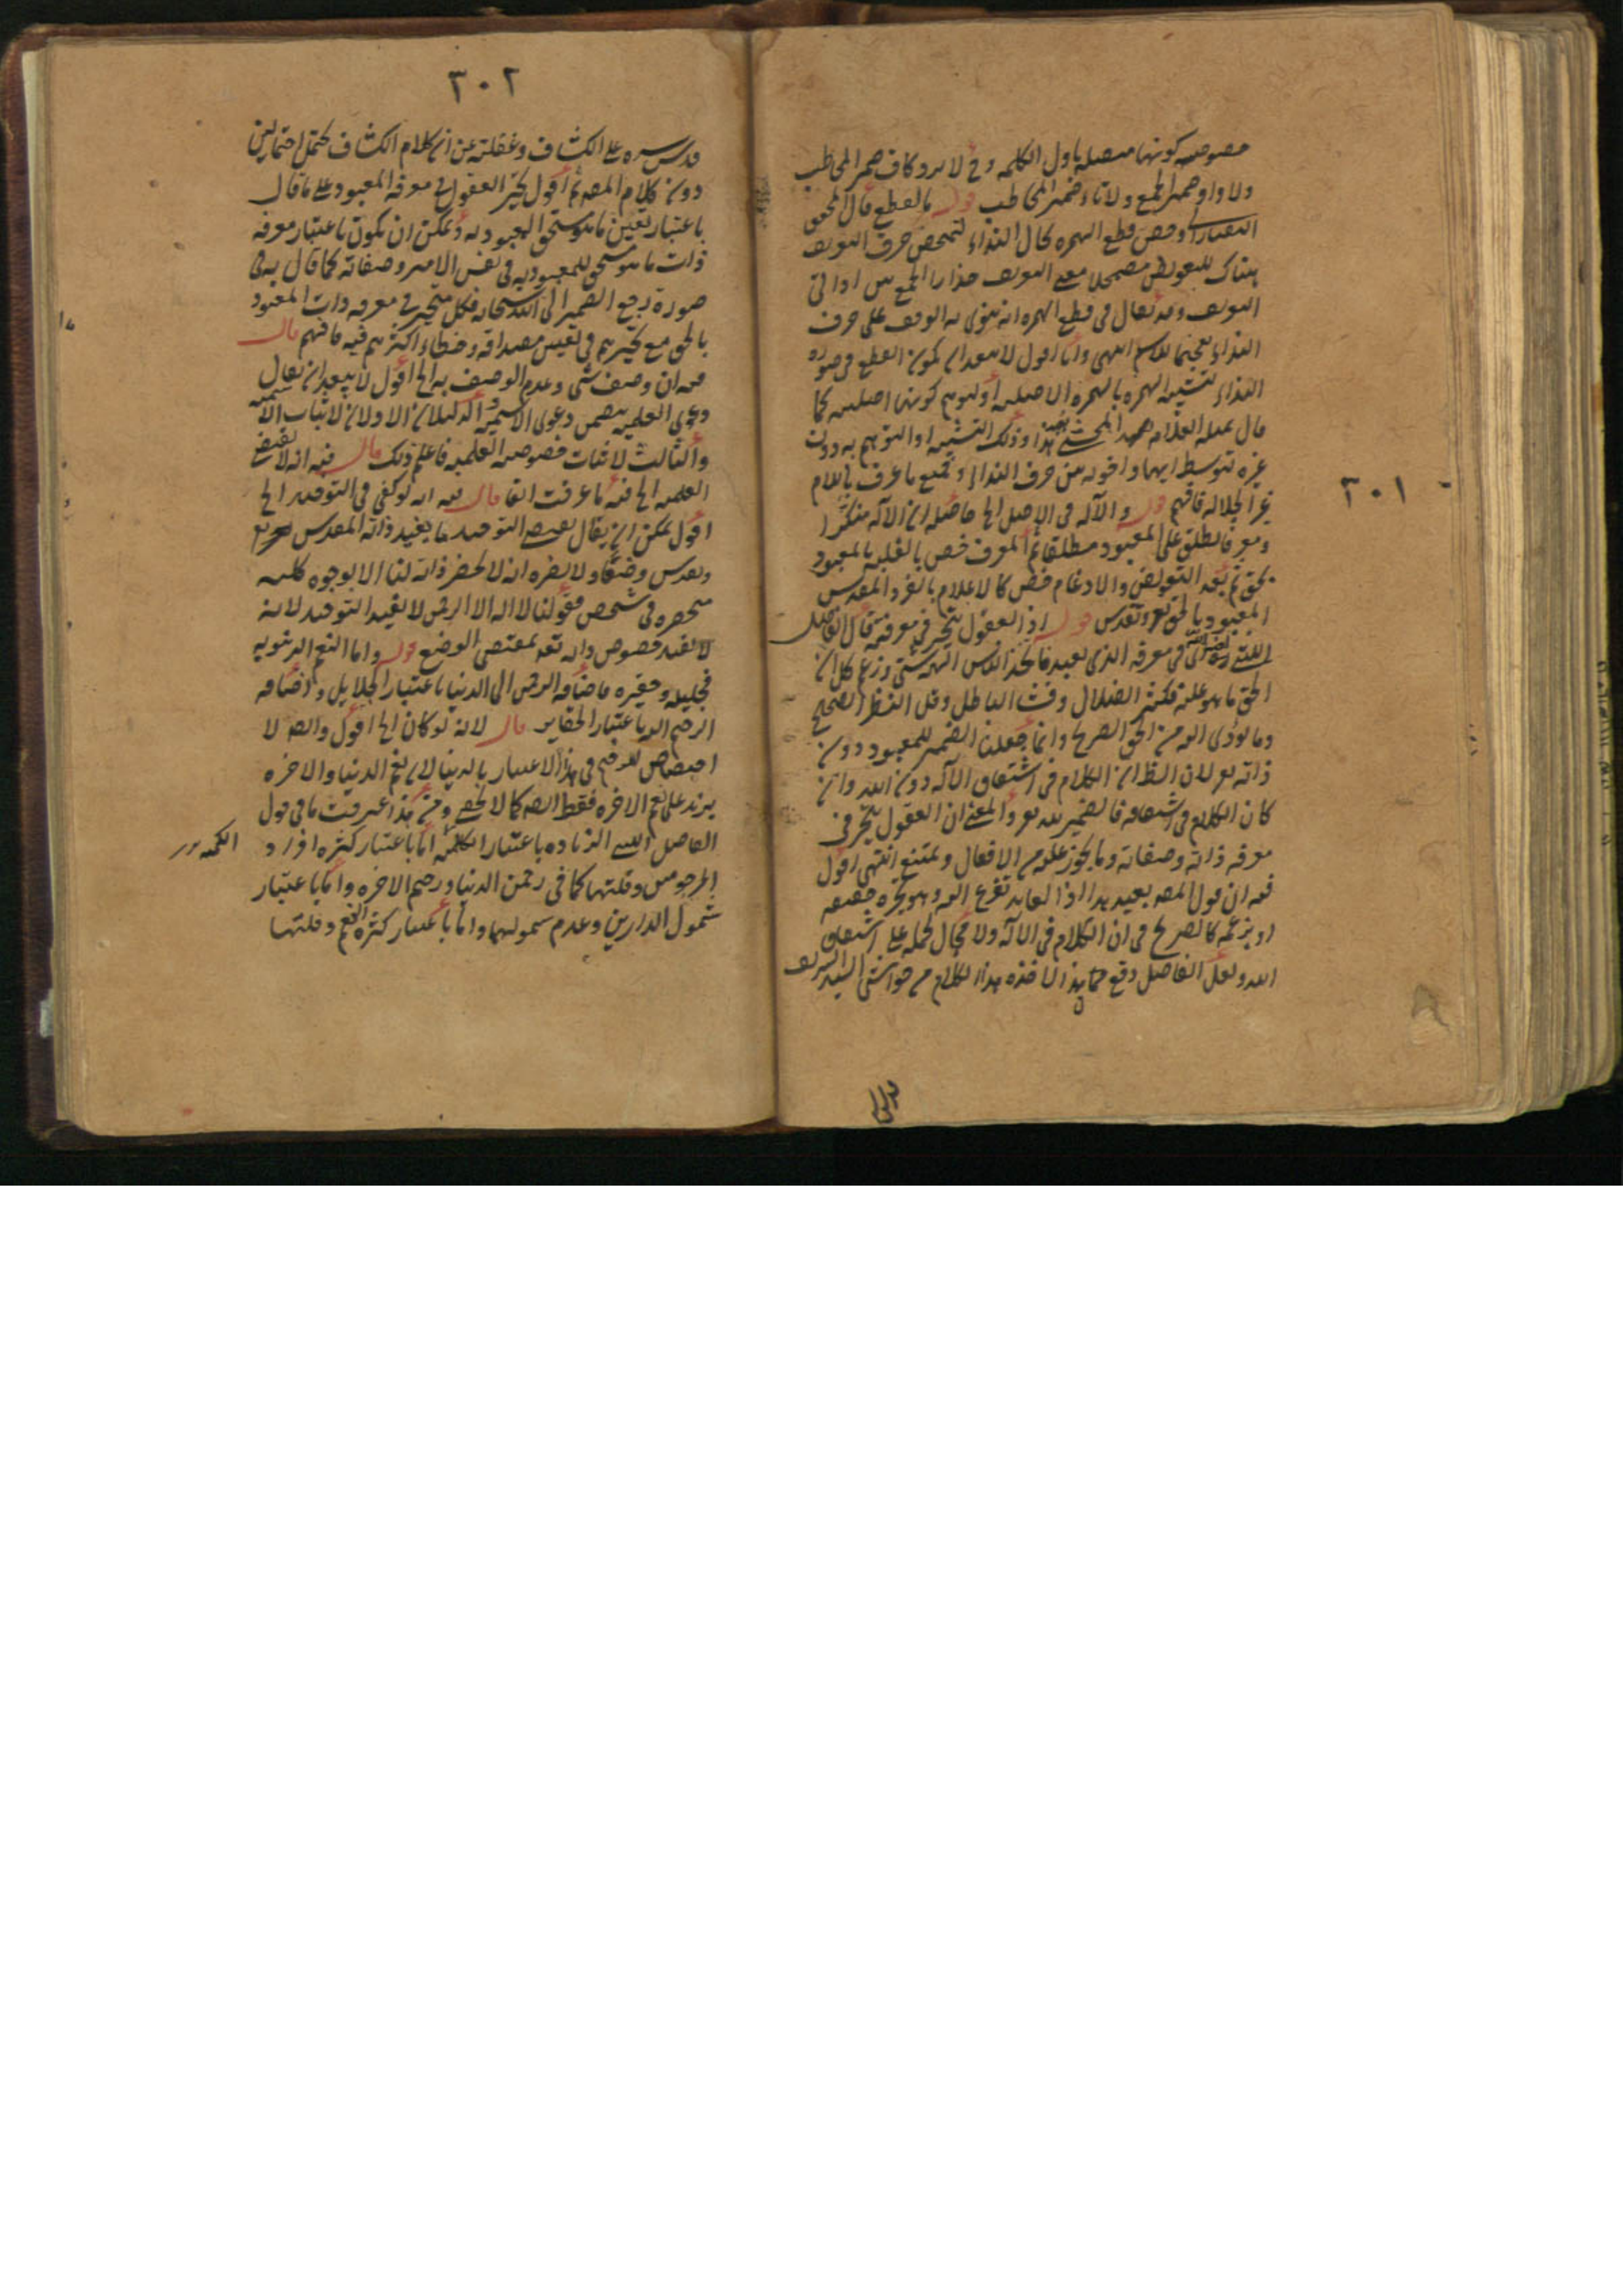 ٣٠١
كونها متصلة باول الكلمه وح لا يرد كاف ضمير المخاطب
ولا واو ضمير الجمع ولا تاء ضمير المخاطب قوله بالقطع قال المحقق
التفتازاني وخص قطع الهمزه بحال النداء لتمحض حرف التعريف
هناك للتعويض مضمحلا معنى التعريف حذارا لجمع بين اداتي
التعريف وقد يقال في قطع الهمزه انه ينوى به الوقف على حرف
النداء تفخيما للاسم انتهى وانا اقول لا يبعد ان يكون القطع في صوره
النداء لتشبيه الهمزه بالهمزه الاصليه او لتوهم كونها اصليه كما
قال العلامه هذا وذلك التشبيه او التوهم به دون
غيره بتوسط ايها واخوته من حرف النداء وجميع ما عرف باللام
غير الجلاله فافهم قوله والآله في الاصل الخ حاصله ان الآله منكرا
ومعرفا يطلق على المعبود مطلقا ثم المعرف خص بالغلبه بالمعبود
بحق ثم بعد التعويض والادغام خص كالاعلام بالفرد المقدس
المعبود بالحق تع وتقدس قوله اذ العقول تتحير في معرفته قال الفاضل
الليثي في معرفه الذي يعبد فاتخذ الناس الهه شتى وزعم كل ان
الحق ما هو عليه فكثر الضلال وفشا الباطل وقل النظر الصحيح
وما يؤدى اليه من الحق الصريح وانما جعلنا الضمير للمعبود دون
ذاته تع لان الظ ان الكلام في اشتقاق الآله دون الله وان
كان الكلام في اشتقاقه فالضمير لله تع والمعنى ان العقول تتحير في
معرفه ذاته وصفاته وما يجوز عليه من الافعال ويمتنع انتهى اقول
فيه ان قول المصـ بعيد هذا اذ العابد يفزع اليه وهو يجيره حقيقه
او بزعمه كالصريح في ان الكلام في الآله ولا مجال لحمله على اشتقاق
الله ولعل الفاضل وقع فيما هذا لاخذه هذا الكلام من حواشي السيد الشريف
٣٠٢
قدس سره على الكشاف وغفلته عن ان كلام الكشاف يحتمل احتمالين
دون كلام المصـ ثم اقول تحير العقول في معرفه المعبود على ما قال
باعتبار تعيين ما هو مستحق للمعبوديه ويمكن ان يكون باعتبار معرفه
ذات ما هو مستحق للمعبوديه في نفس الامر وصفاته كما قال به في
صورة رجع الضمير الى الله سبحانه فكل متحير في معرفه ذات المعبود
بالحق مع تحيرهم في تعيين مصداقه وخطاء اكثرهم فيه فافهم قال
فيه ان وصف شئ وعدم الوصف به الخ اقول لا يبعد ان يقال
دعوى العلميه يتضمن دعوى الاسميه والدليلان الاولان لاثبات الاسميه
والثالث لاثبات خصوصيه العلميه فاعلم ذلك قال فيه انه لا يقتضى
العلميه الخ فيه ما عرفت انفا قال فيه انه لو كفى في التوحيد الخ
اقول يمكن ان يقال يقتضى التوحيد ما يفيد ذاته المقدس
وتقدس وضعا ولا يضره انه لا يحضر ذاته لنا الا بوجوه كليه
منحصره في شخص فقولنا لا اله الا الرحمن لا يفيد التوحيد لانه
لا يفيد خصوص ذاته تعـ بمقتضى الوضع قوله واما النعم الدنيويه
فجليله وحقيره فاضافه الرحمن الى الدنيا باعتبار الجلايل واضافه
الرحيم اليه باعتبار الحقاير قال لانه لو كان الخ اقول وايضا لا
اختصاص للرحيم في هذا الاعتبار بالدنيا لان نعم الدنيا والاخره
يزيد على نعم الاخره فقط ايضا كما لا يخفى ومن هذا عرفت ما في قول
الفاضل الليثي الزياده باعتبار الكميه اما باعتبار كثره افراد
المرحومين وقلتها كما في رحمن الدنيا ورحيم الاخره واما باعتبار
شمول الدارين وعدم شمولهما واما باعتبار كثره النعم وقلتها